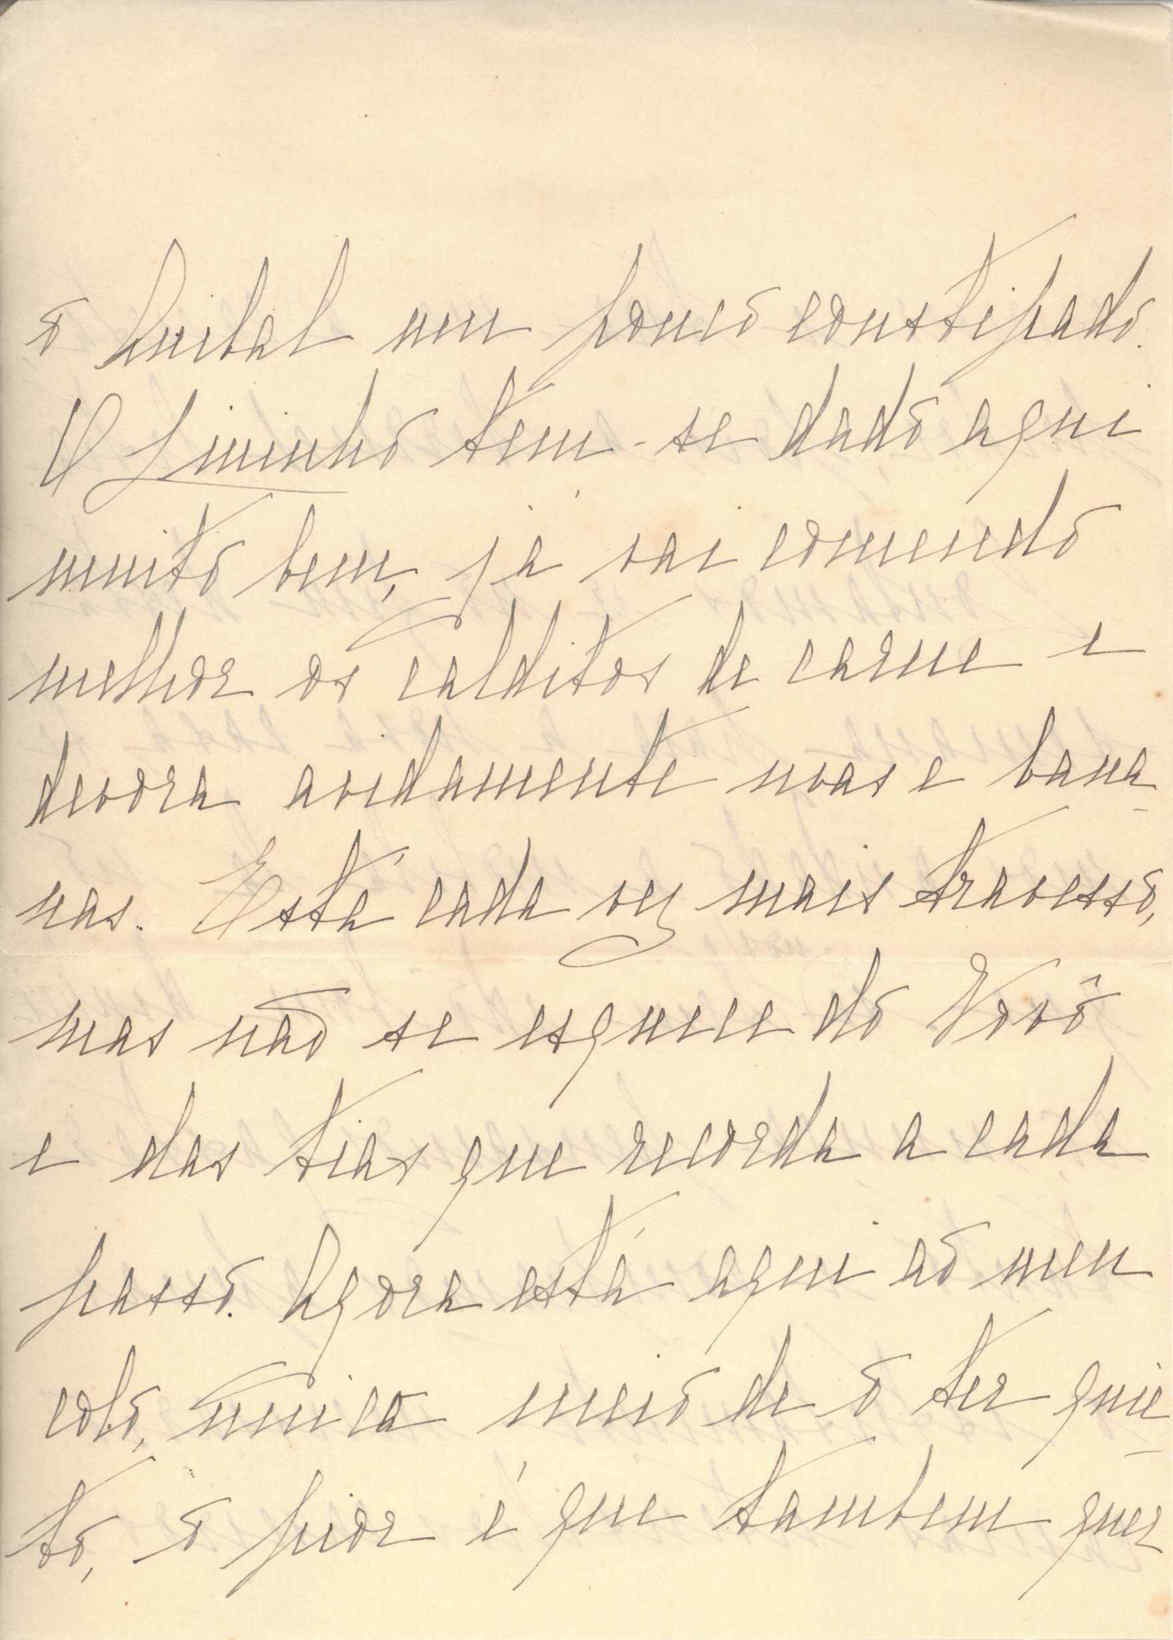 o Anibal um pouco constipado.
O Lininho tem-se dado aqui
muito bem, já vai comendo
melhor os calditos de carne e
devora avidamente uvas e bana-
nas. Está cada vez mais travesso,
mas não se esquece do Vovô
e das tias que recorda a cada
passo. Agora está aqui ao meu
colo, unico meio de o ter quie-
to, o pior é que tambem quer